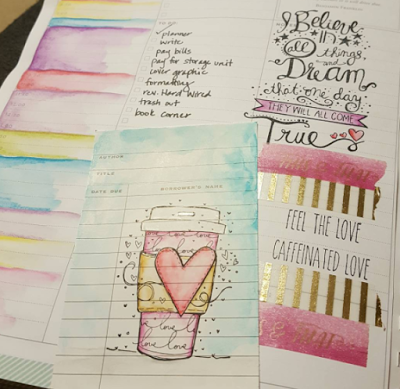 planner
write
pay bills
pay for storage unit
cover graphic
formatting
rev. Hard Wired
trash out
book corner
I Believe
in
all things
and
Dream
that one day
THEY WILL ALL COME
True
AUTHOR
TITLE
DATE DUE BORROWER'S NAME
love love
love love
FEEL THE LOVE
CAFFEINATED LOVE